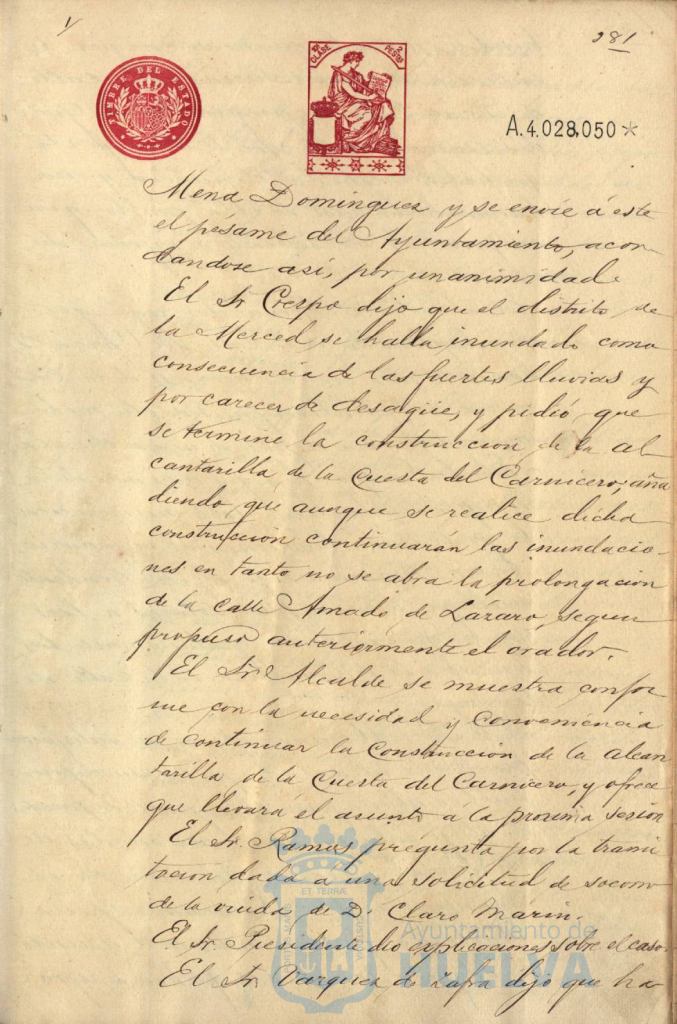 281
TIMBRE DEL ESTADO
CLASE 2 PESETAS
A.4.028,050*
Mena Dominguez y se envie á este
el pésame del Ayuntamiento, acor
dandose así, por unanimidad.
El Sr Crespo dijo que el distrito de
la Merced se halla inundado como
consecuencia de las fuertes lluvias y
por carecer de desagüe, y pidió que
se termine la construccion de la al
cantarilla de la Cuesta del Carnicero, aña
diendo que aunque se realice dicha
construcción continuarán las inundacio-
nes en tanto no se abra la prolongacion
de la calle Amado de Lázaro, segun
propuso anteriormente el orador.
El Sr. Alcalde se muestra confor
me con la necesidad y conveniencia
de continuar la Construccion de la alcan
tarilla de la Cuesta del Carnicero, y ofrece
que llevará el asunto á la proxima sesion
El Sr. Ramos pregunta por la trami
tacion dada a una solicitud de socorro
de la viuda de D. Claro Marin.
El Sr. Presidente dio explicaciones sobre el caso.
El Sr Vazquez de Zafra dijo que ha-
Ayuntamiento de
HUELVA